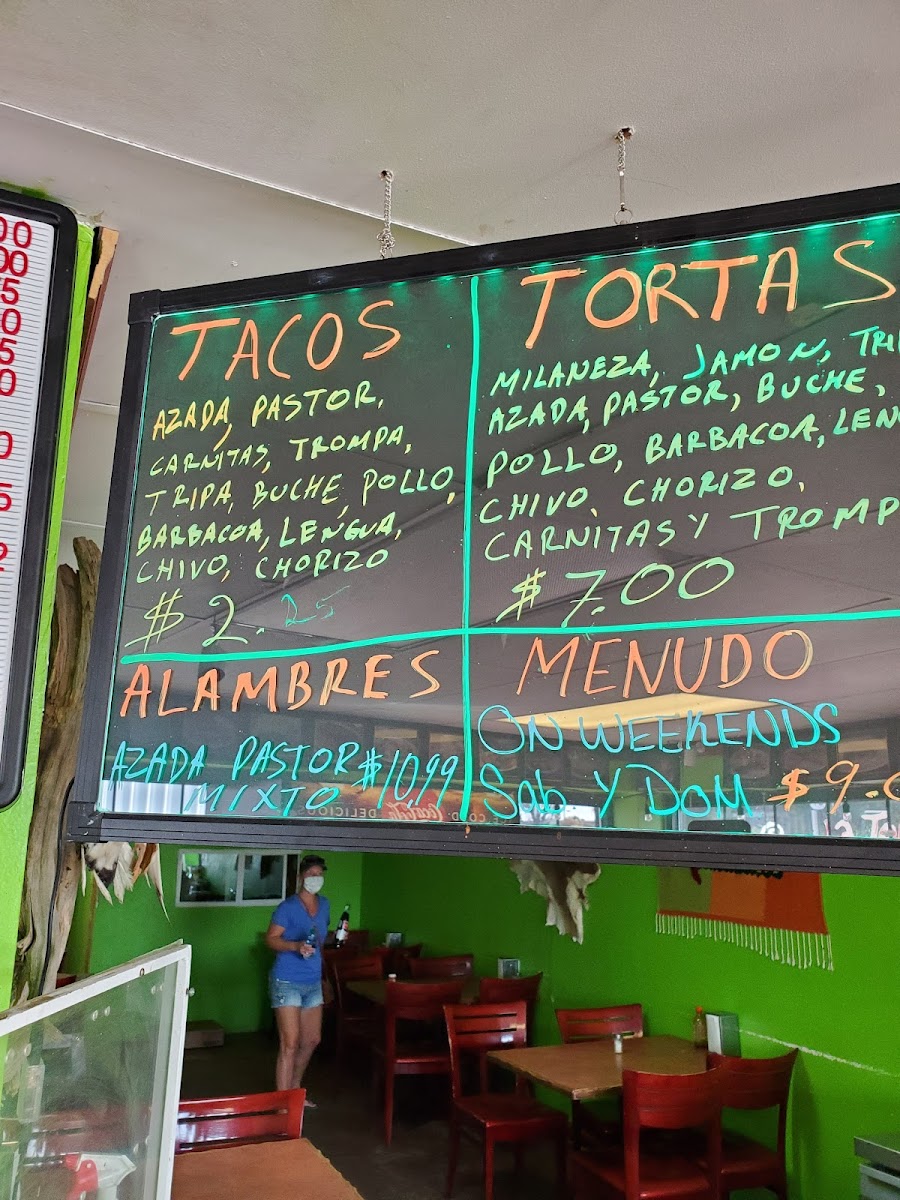 TACOS
AZADA, PASTOR,
CARNITAS, TROMPA,
TRIPA, BUCHE, POLLO,
BARBACOA, LENGUA,
CHIVO, CHORIZO
$2.25
TORTAS
MILANEZA, JAMON, TRI
AZADA, PASTOR, BUCHE,
POLLO, BARBACOA, LEN
CHIVO, CHORIZO,
CARNITAS Y TROMP
$7.00
ALAMBRES
AZADA PASTOR $10,99
MIXTO
MENUDO
ON WEEKENDS
Sab Y DOM $9.0
DELICIOUS
00
00
75
00
75
50
0
5
2